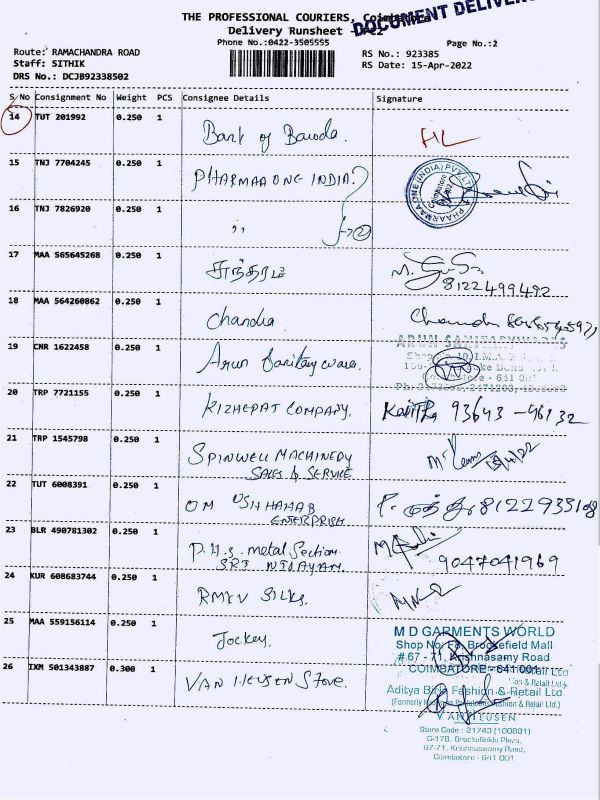 THE PROFESSIONAL COURIERS, Coimbatore
DOCUMENT DELIVERY
Delivery Runsheet
Phone No.:0422-3505555
Page No.:2
Route: RAMACHANDRA ROAD
RS No.: 923385
Staff: SITHIK
RS Date: 15-Apr-2022
DRS No.: DCJB92338502
S No Consignment No Weight PCS Consignee Details Signature
14 TUT 201992 0.250 1 Bank of Baroda. HL
15 TNJ 7704245 0.250 1 PHARMAA ONE INDIA.
16 TNJ 7826920 0.250 1 ,, 2
17 MAA 565645268 0.250 1 சுந்தரம்
8122499492
18 MAA 564260862 0.250 1 Chandra Chandra
19 CNR 1622458 0.250 1 Arun Sanitaryware.
ARUN SANITARYWARES
Coimbatore - 641 001
20 TRP 7721155 0.250 1 KIZHEPAT COMPANY. Kavitha 93643-46132
21 TRP 1545798 0.250 1 SPINWELL MACHINERY
SALES & SERVICE
22 TUT 6008391 0.250 1 OM
ENTERPRISE
23 BLR 490781302 0.250 1 P.H.S. metal Section
SRI NILAYAM. 9047041969
24 KUR 608683744 0.250 1 RMKV SILKS.
25 MAA 559156114 0.250 1 Jockey.
M D GARMENTS WORLD
Shop No: F8, Brookefield Mall
# 67 - 71, Krishnasamy Road
COIMBATORE - 641 001
26 IXM 501343887 0.300 1 VAN HEUSEN Store.
Aditya Birla Fashion & Retail Ltd
VAN HEUSEN
Store Code : 21743 (100831)
G-17B, Brookefields Plaza,
67-71, Krishnaswamy Road,
Coimbatore - 641 001